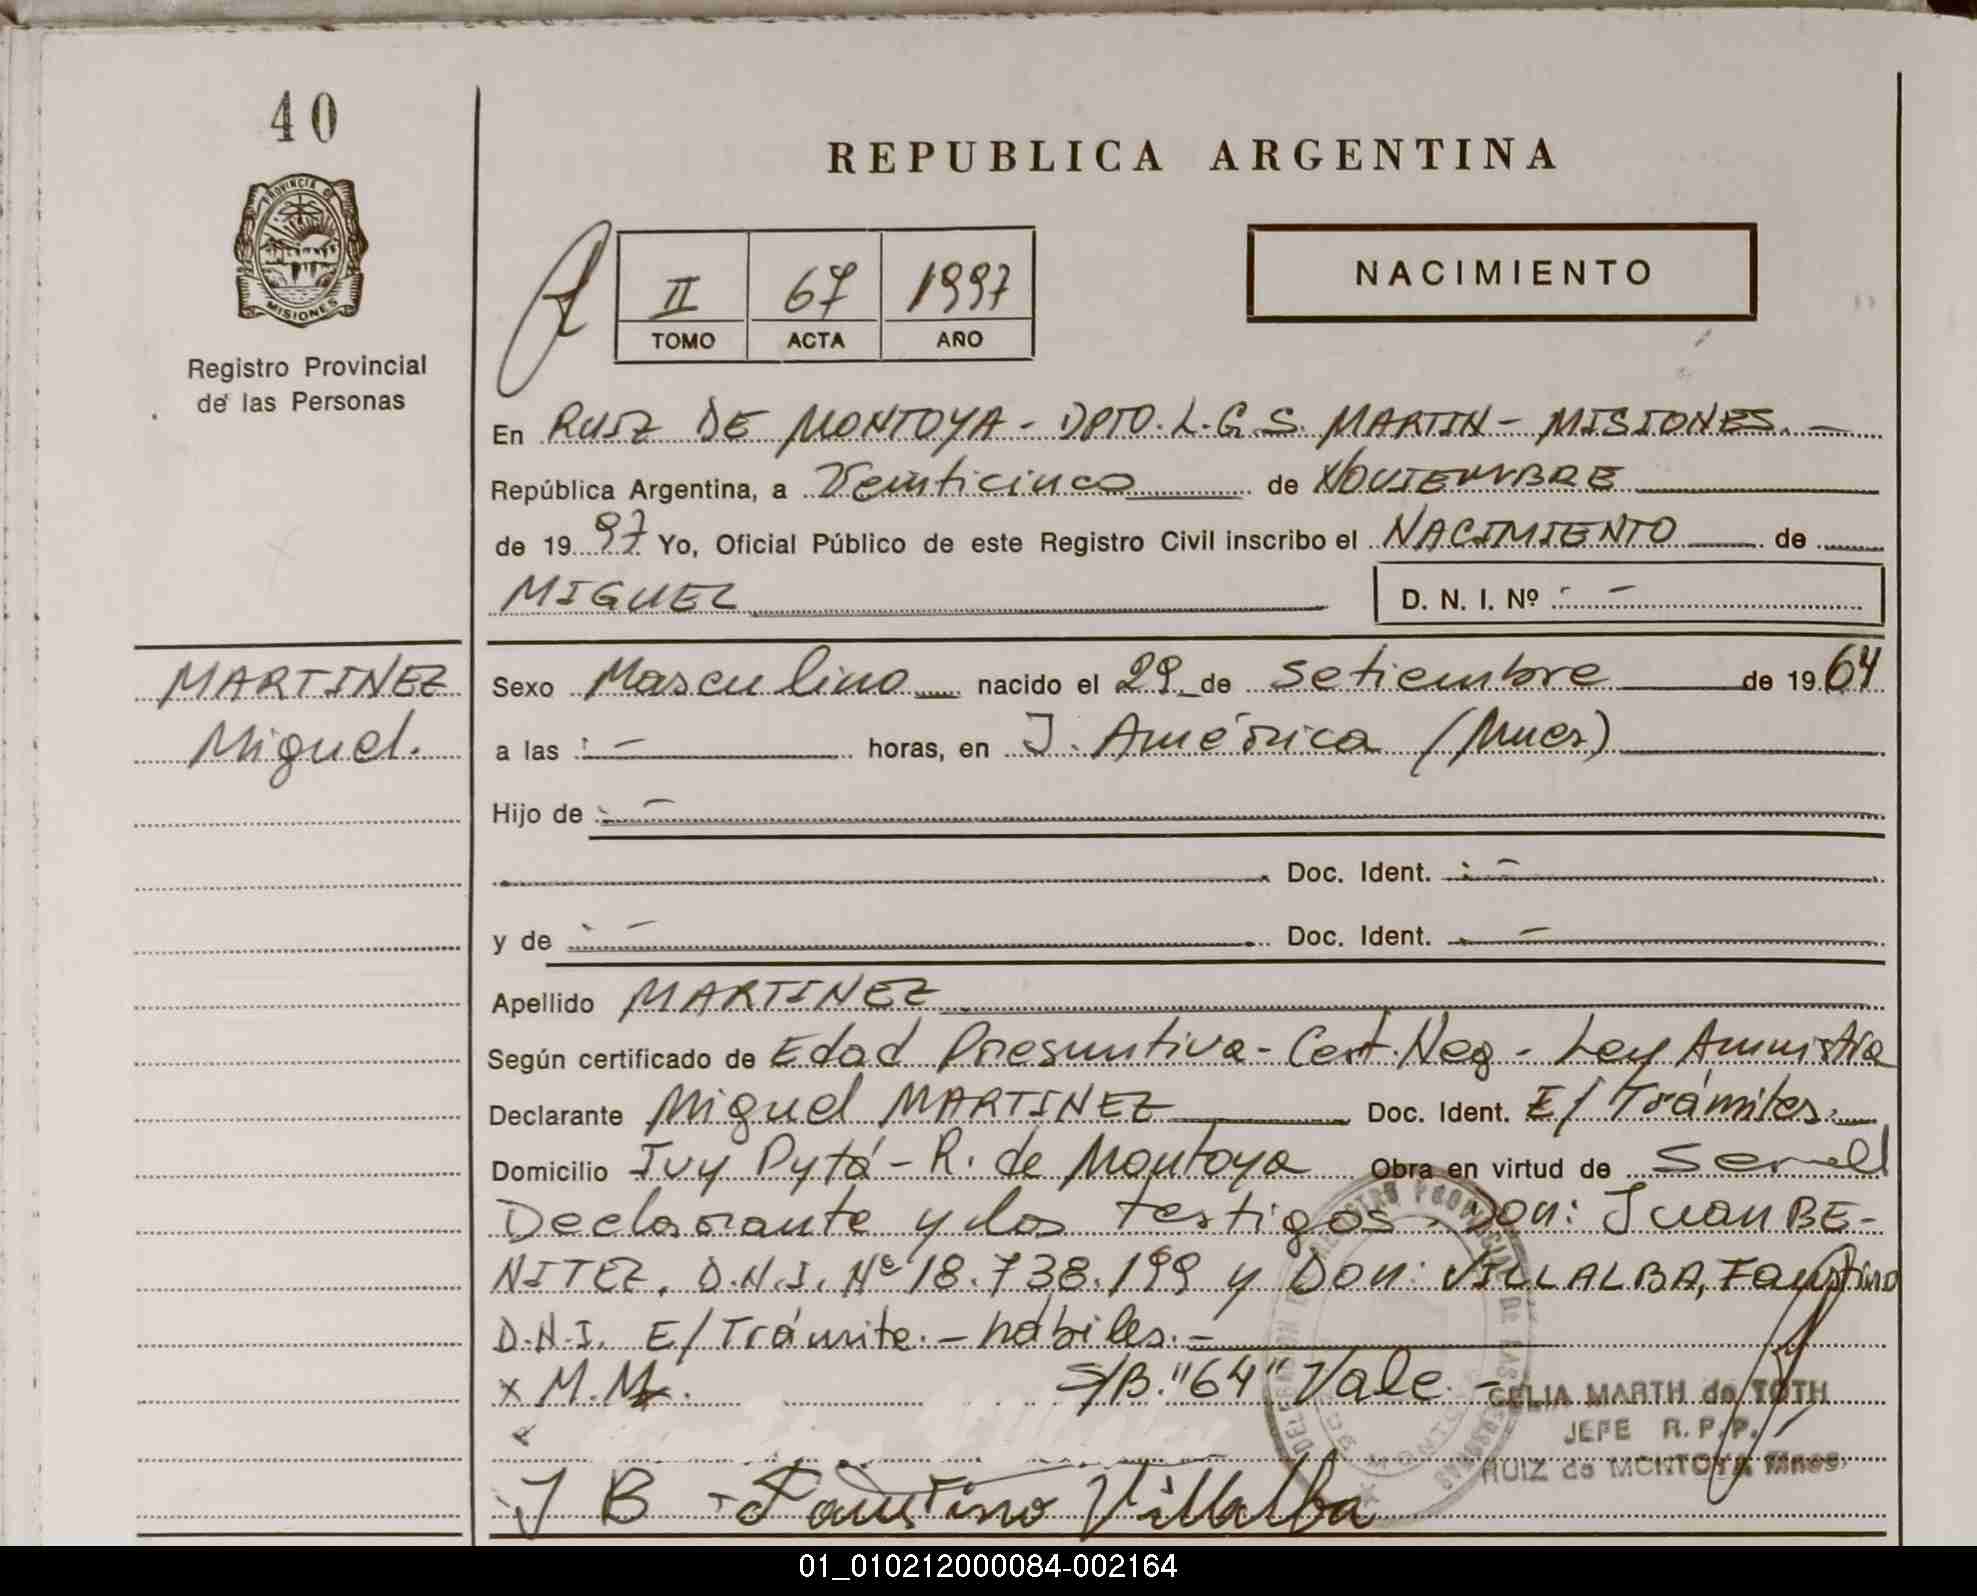 40
PROVINCIA DE
MISIONES
Registro Provincial
de las Personas
REPUBLICA ARGENTINA
II 67 1997
TOMO ACTA AÑO
NACIMIENTO
En RUIZ DE MONTOYA - DPTO. L.G.S. MARTIN - MISIONES. -
República Argentina, a Veinticinco de NOVIEMBRE
de 1997 Yo, Oficial Público de este Registro Civil inscribo el NACIMIENTO de
MIGUEL D. N. I. Nº : -
MARTINEZ
Miguel.
Sexo Masculino nacido el 29 de Setiembre de 1964
a las : - horas, en J. América (Mnes)
Hijo de : -
Doc. Ident. : -
y de : - Doc. Ident. -
Apellido MARTINEZ
Según certificado de Edad Presuntiva - Cert. Neg - Ley Amnistía
Declarante Miguel MARTINEZ Doc. Ident. E/ Trámites.
Domicilio Ivy Pytá - R. de Montoya Obra en virtud de
Declarante y los testigos. Don: Juan BE-
NITEZ. D.N.I. Nº 18.738.199 y Don: VILLALBA, Faustino
D.N.I. E/ Trámite. - hábiles. -
x M.M. S/B. "64" Vale. -
CELIA MARTH de TOTH
JEFE R. P. P.
RUIZ de MONTOYA Mnes.
J B Faustino Villalba
01_010212000084-002164